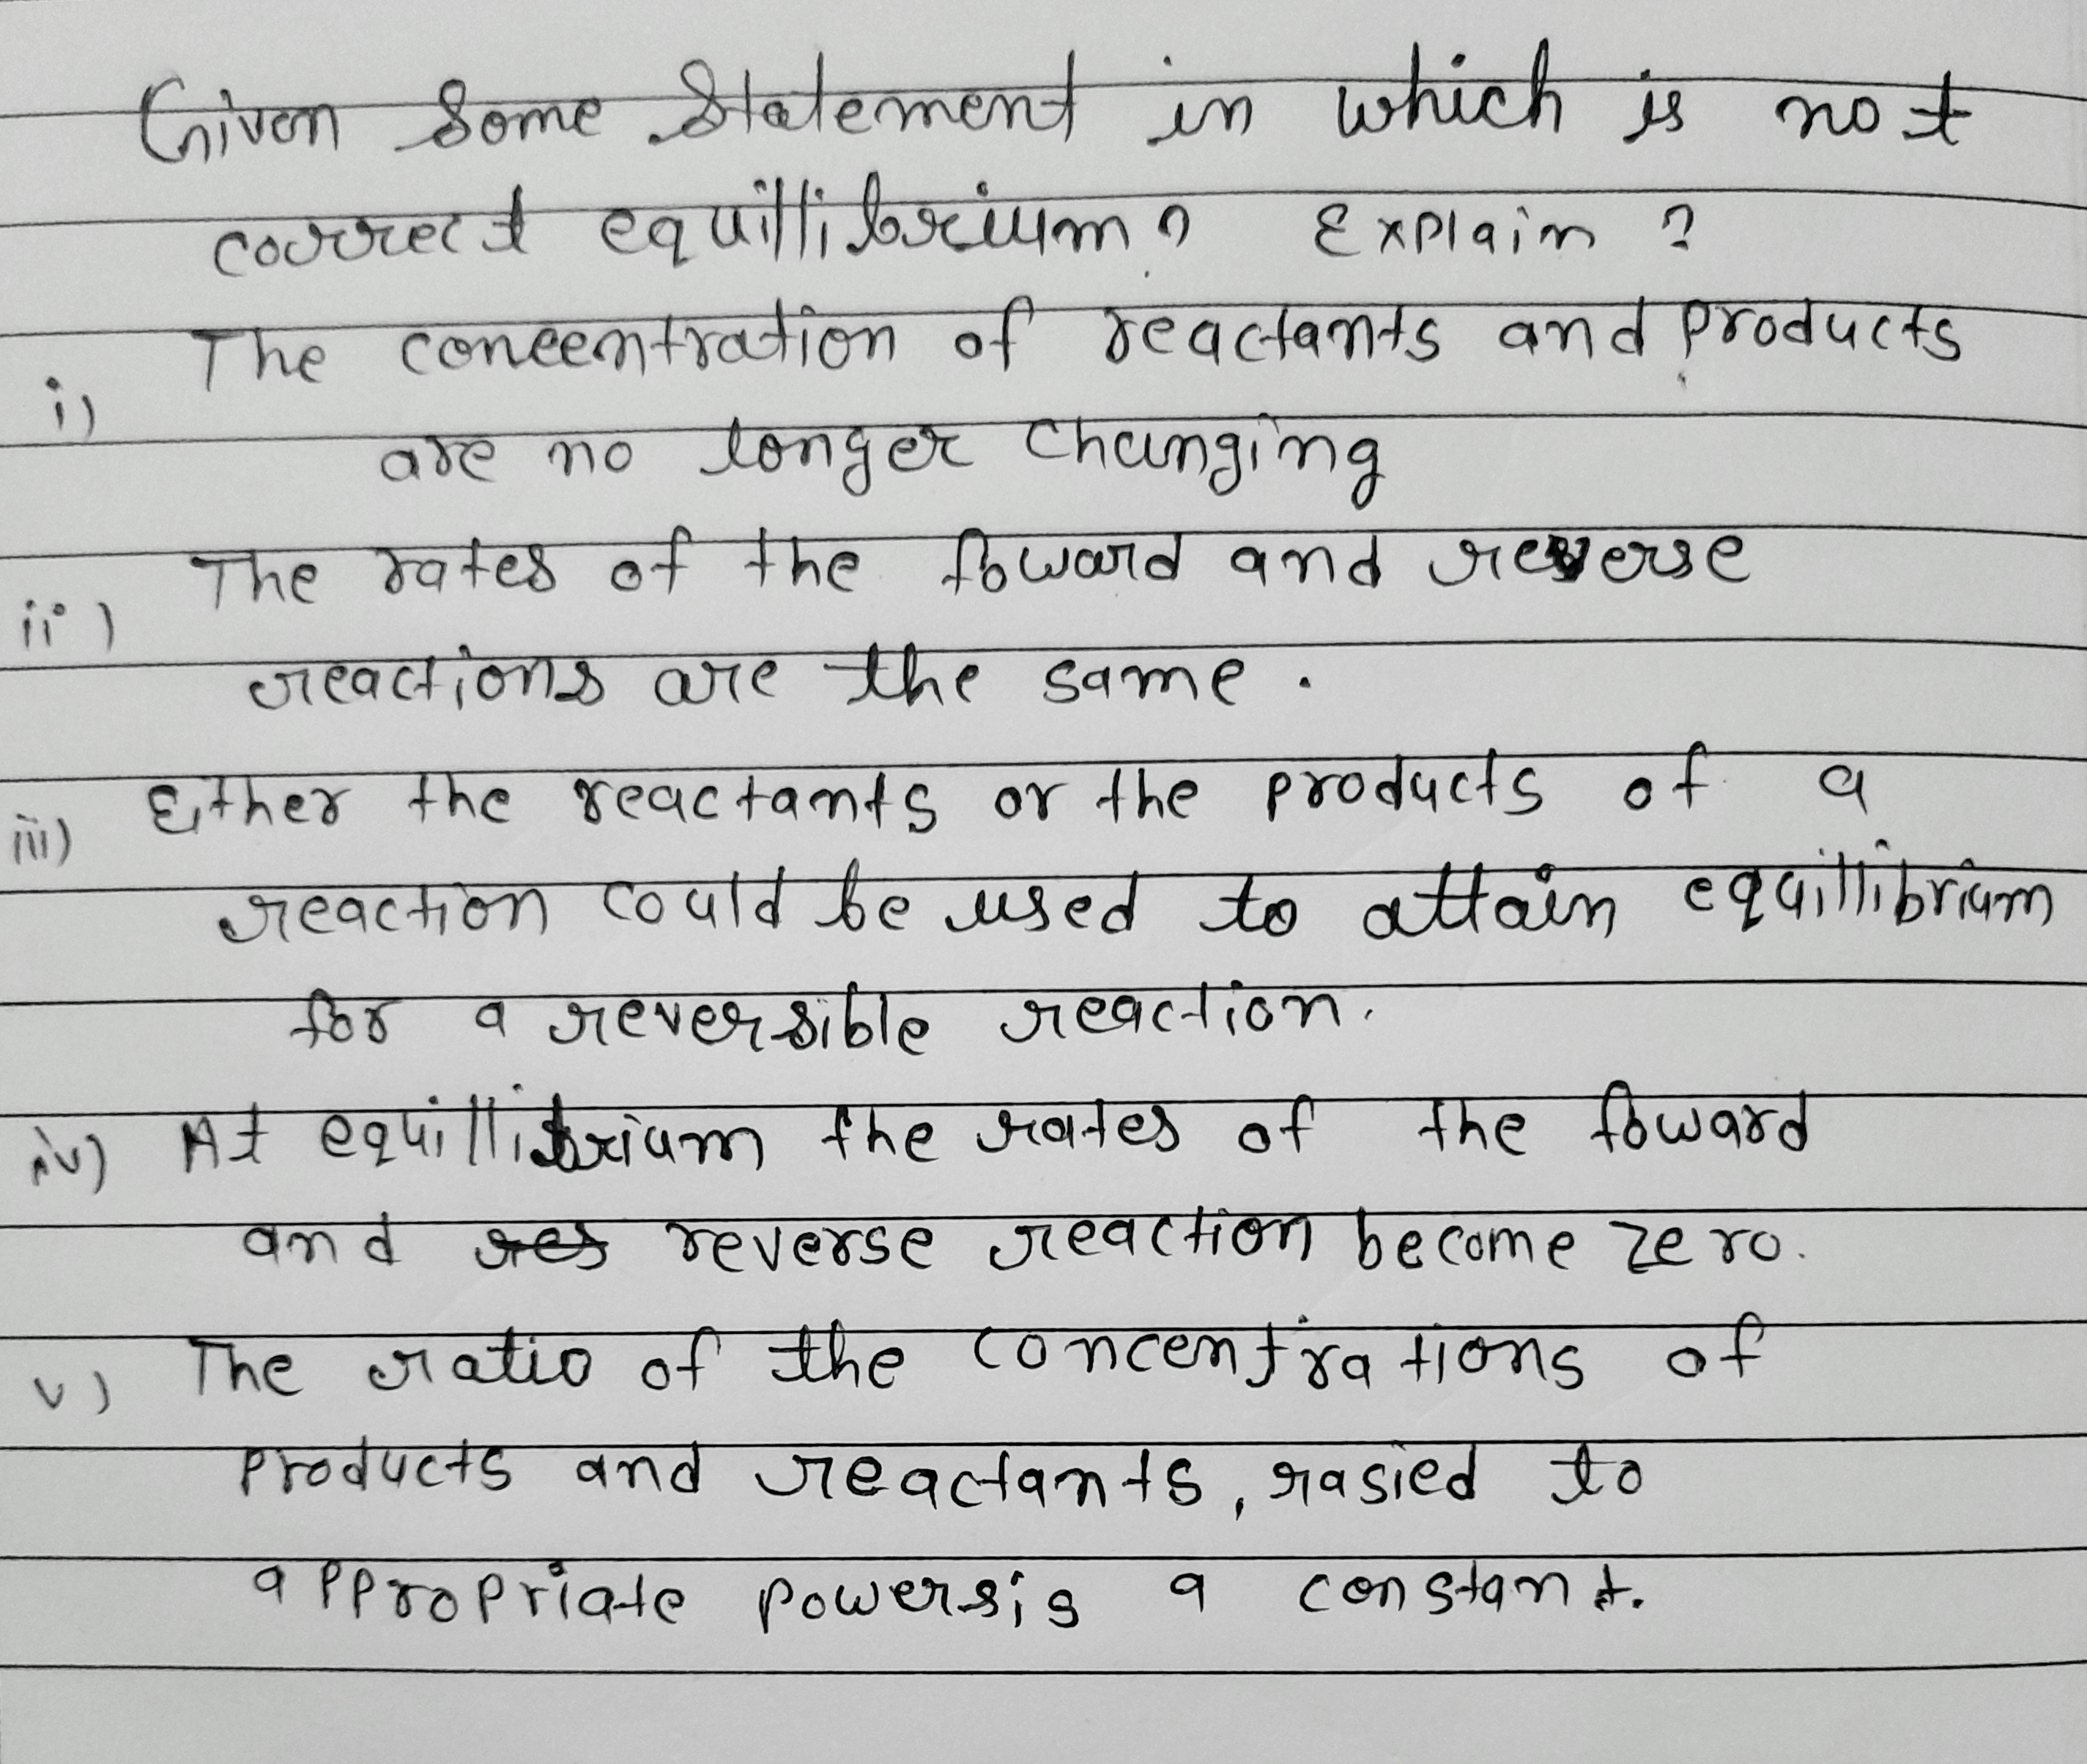 Given Some Statement in which is not
correct equillibrium? Explain?
The concentration of reactants and products
i)
are no longer changing
The rates of the foward and reverse
ii)
reactions are the same.
Either the reactants or the products of a
iii)
reaction could be used to attain equillibrium
for a reversible reaction.
iv) At equillibrium the rates of the foward
and res reverse reaction become zero.
v) The ratio of the concentrations of
products and reactants, rasied to
appropriate powersis a constant.